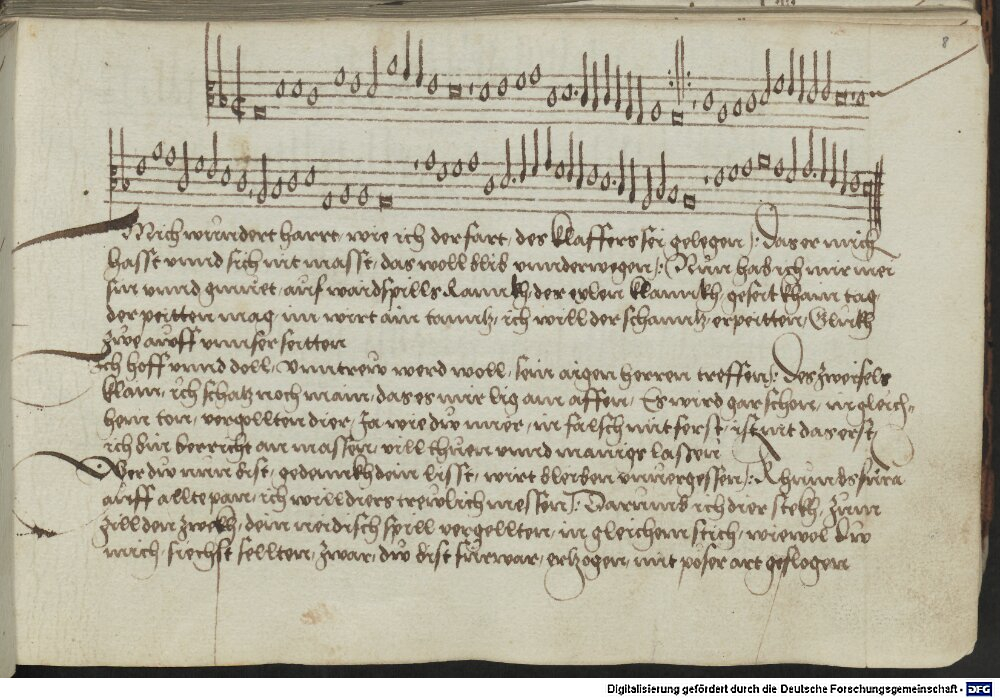 8
Mich wundert harrt, wie ich der fart, des klaffers sei gelegen :/: Das er mich
hasst unnd sich nit masst, das woll blib unnderwegen :/: Nun hab ich mir mei
sin unnd gmuet, auf wardspills kannkh, der eylen klannkh, geseit khain tag,
der peitten mag, im wirt ain tanntz, ich will der schanntz, erpeitten, Glükh
zwe auff unnser seitten
Ich hoff unnd doll, unntrew werd woll, sein aigen herren treffen :/: Des zweifels
klain, ich schatz noch main, das es mir lig am affen, Es wird gar schon, in gleich=
hem ton, vergollten dier, Ja wie duw mier, in falsch mit ferst, ist nit das erst,
ich bin bericht an massen, vill thuen unnd manigs lassen
Wer duw nun bist, gedennkh dein lisst, wirt bleiben unvergessen :/: khumbs fura
auff allte pan, ich will diers trewlich messen :/: Darumb ich dier stekh, zum
zill den zwekh, dem neidisch spill vergellten, in gleichem stich, wiewol duw
mich, siechst sellten, zwar, duw bist fürwar, erzogen, mit poser art geflogen
Digitalisierung gefördert durch die Deutsche Forschungsgemeinschaft - DFG